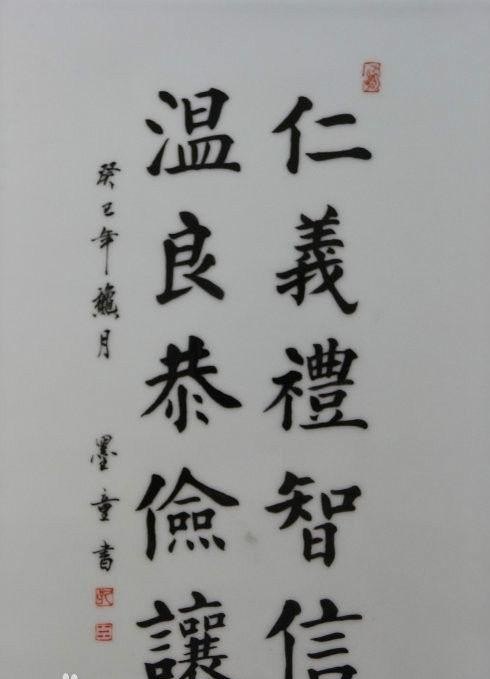 仁義禮智信
温良恭儉讓
癸巳年龝月
墨童書